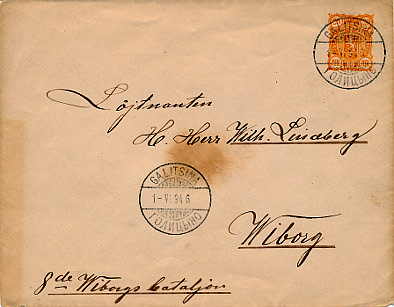 GALITSINA
ГОЛИЦЫНО
Löjtnanten
H. Herr Wilh. Lindberg
GALITSINA
1-VI 94 6
ГОЛИЦЫНО
Wiborg
8de Wiborgs bataljon